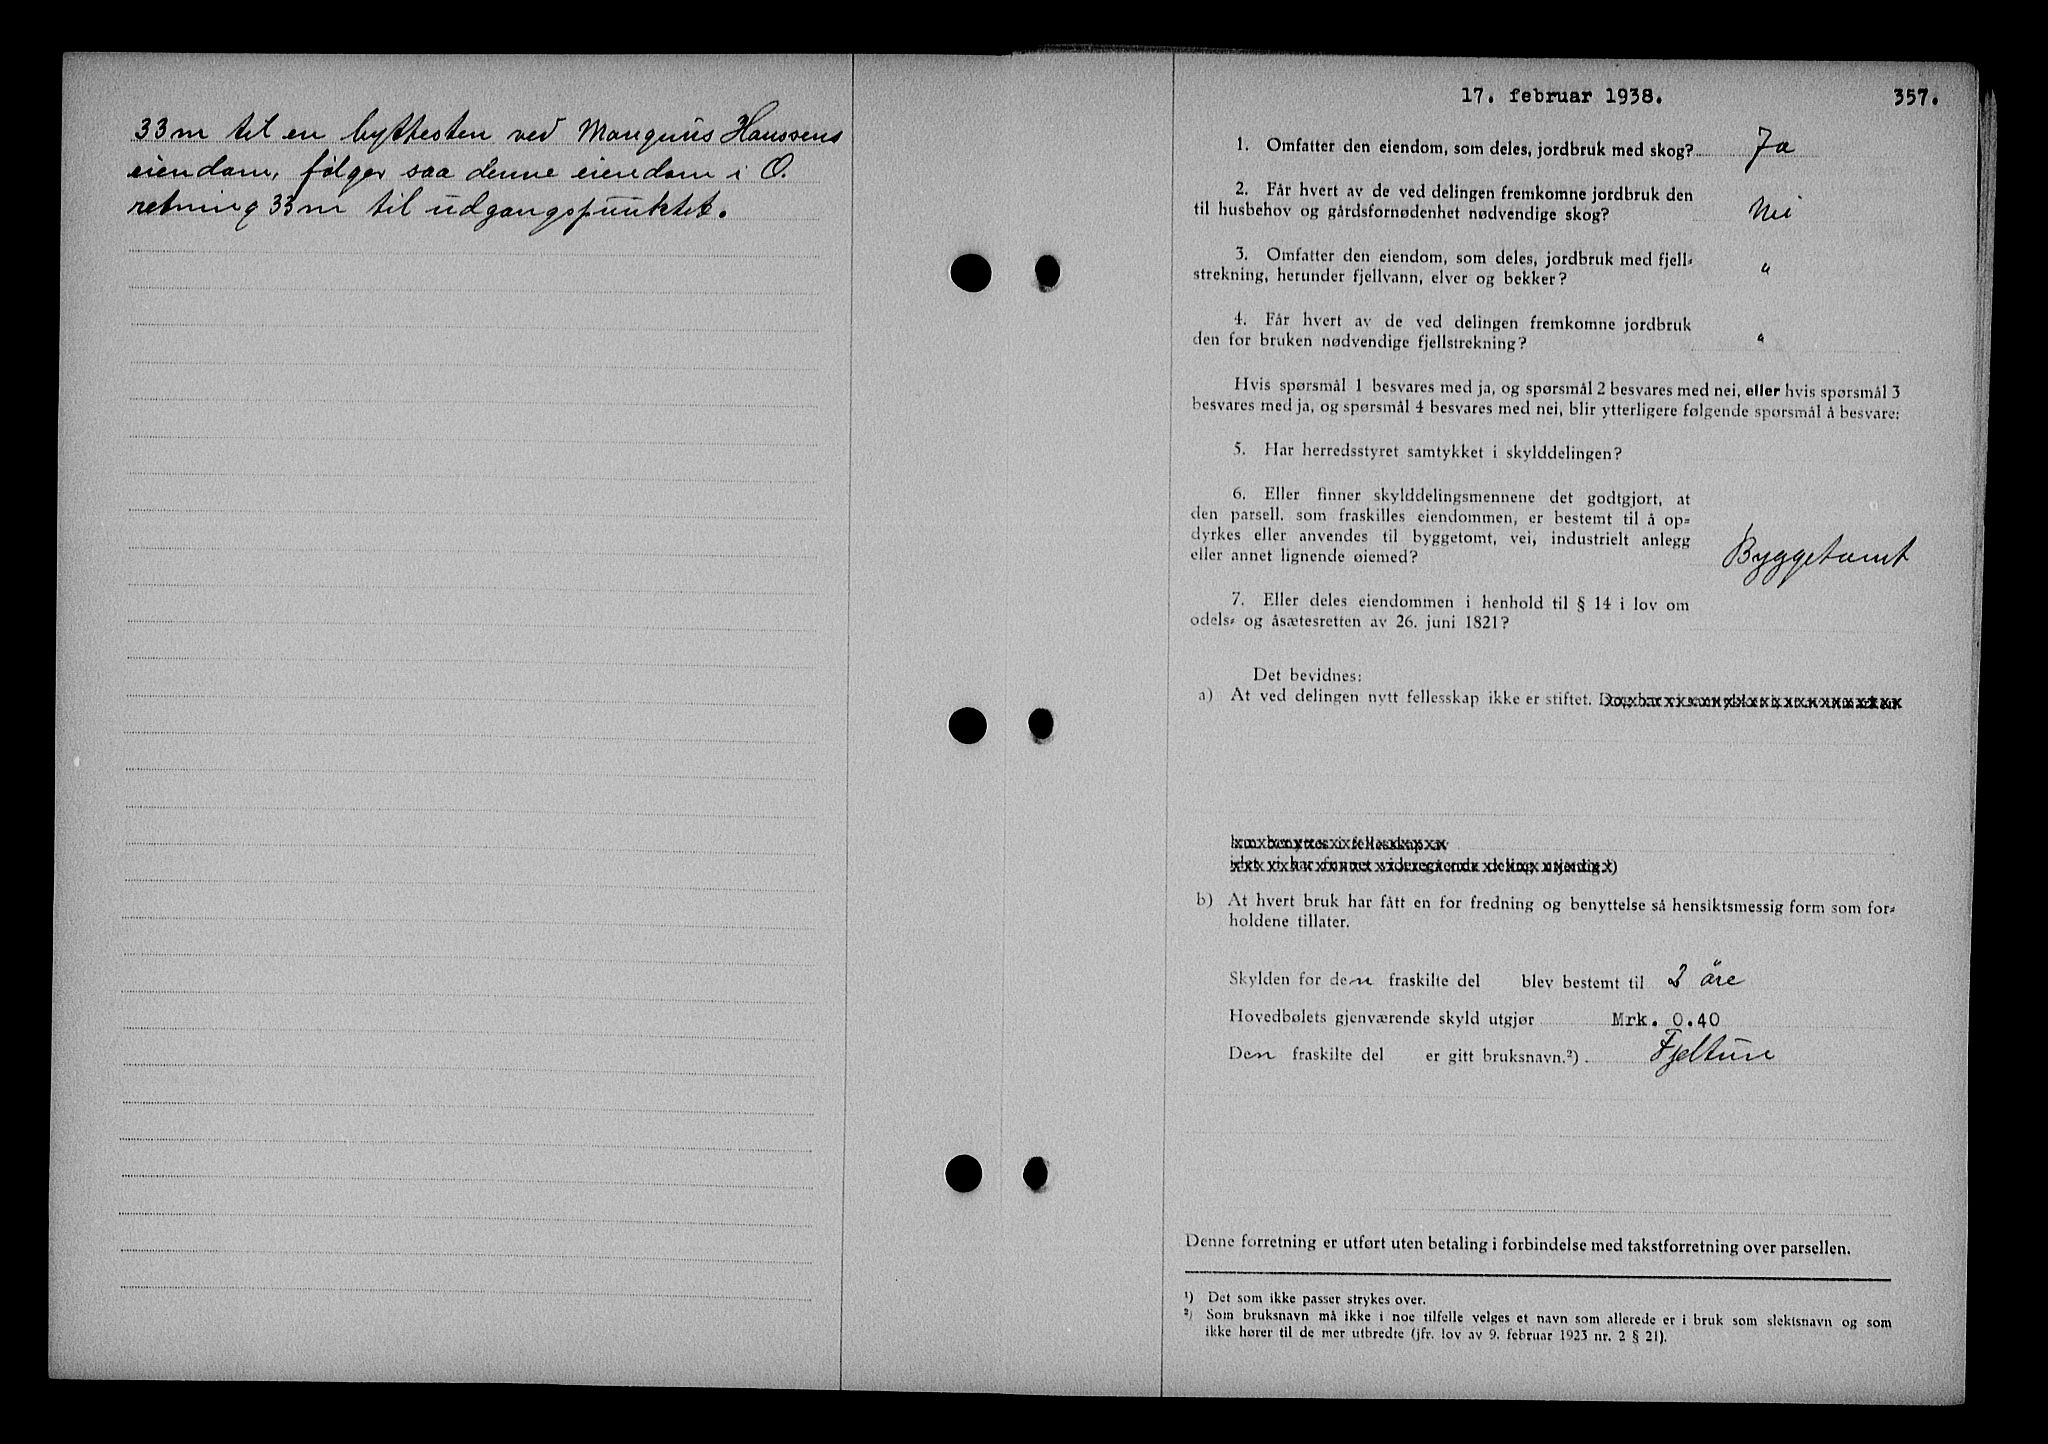 33m til en byttesten ved Mangnus Hanssens
eiendom, følger saa denne eiendom i O.
retning 33m til udgangspunktet.
17. februar 1938.
357.
1. Omfatter den eiendom, som deles, jordbruk med skog? Ja
2. Får hvert av de ved delingen fremkomne jordbruk den
til husbehov og gårdsfornødenhet nødvendige skog? Nei
3. Omfatter den eiendom, som deles, jordbruk med fjell-
strekning, herunder fjellvann, elver og bekker? "
4. Får hvert av de ved delingen fremkomne jordbruk
den for bruken nødvendige fjellstrekning? "
Hvis spørsmål 1 besvares med ja, og spørsmål 2 besvares med nei, eller hvis spørsmål 3
besvares med ja, og spørsmål 4 besvares med nei, blir ytterligere følgende spørsmål å besvare:
5. Har herredsstyret samtykket i skylddelingen?
6. Eller finner skylddelingsmennene det godtgjort, at
den parsell. som fraskilles eiendommen, er bestemt til å op-
dyrkes eller anvendes til byggetomt, vei, industrielt anlegg
eller annet lignende øiemed? Byggetomt
7. Eller deles eiendommen i henhold til § 14 i lov om
odels- og åsætesretten av 26. juni 1821?
Det bevidnes:
a) At ved delingen nytt fellesskap ikke er stiftet.
b) At hvert bruk har fått en for fredning og benyttelse så hensiktsmessig form som for-
holdene tillater.
Skylden for den fraskilte del blev bestemt til 2 öre
Hovedbølets gjenværende skyld utgjør Mrk. 0.40
Den fraskilte del er gitt bruksnavn.²) . Fjeltun
Denne forretning er utført uten betaling i forbindelse med takstforretning over parsellen.
¹) Det som ikke passer strykes over.
²) Som bruksnavn må ikke i noe tilfelle velges et navn som allerede er i bruk som slektsnavn og som
ikke hører til de mer utbredte (jfr. lov av 9. februar 1923 nr. 2 § 21).